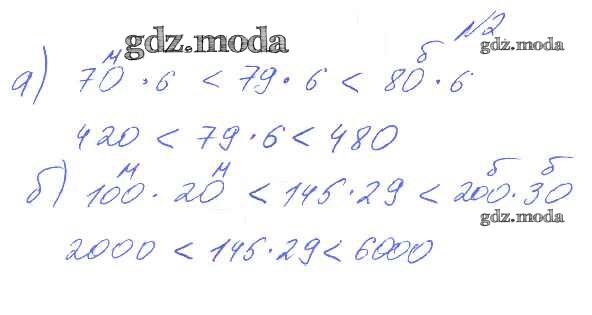 gdz.moda
№2
gdz.moda
м б
а) 70 · 6 < 79 · 6 < 80 · 6
420 < 79 · 6 < 480
м м б б
б) 100 · 20 < 145 · 29 < 200 · 30
gdz.moda
2000 < 145 · 29 < 6000